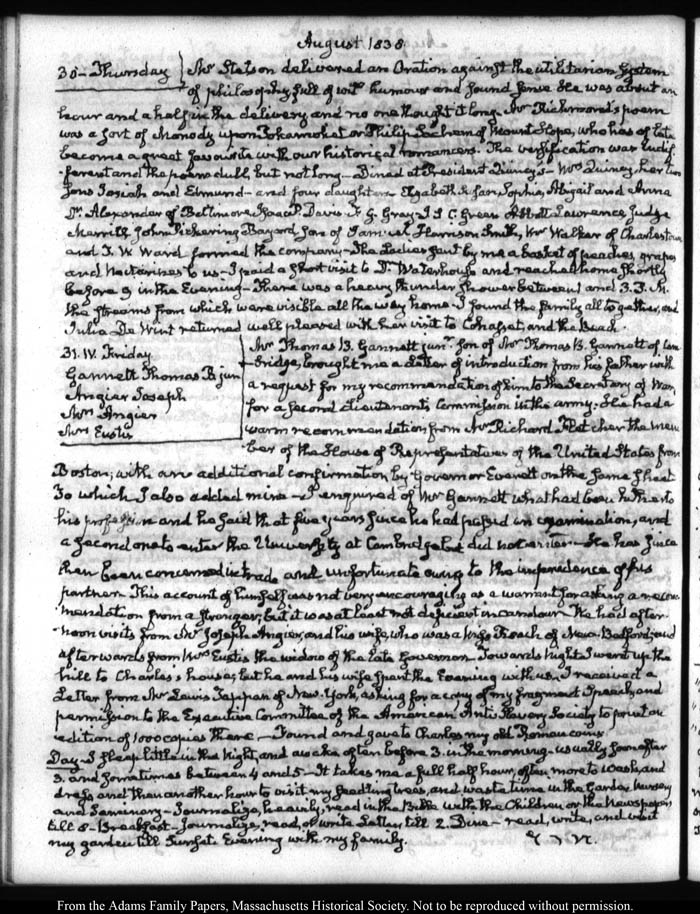 August 1838
30 - Thursday
Mr Stetson delivered an Oration against the utilitarian System
of philosophy full of wit humour and sound sense He was about an
hour and a half in the delivery and no one thought it long. Mr Richmond's poem
was a sort of Monody upon or Philip Sachem of Mount Hope, who has of late
become a great favourite with our historical romancers. The versification was indif-
ferent and the poem dull, but not long - Dined at President Quincy's - Mrs Quincy, her two
Sons Josiah and Edmund - and four daughters Elizabeth Susan, Sophia, Abigail and Anna
Dr. Alexander of Baltimore Isaac P. Davis F. G. Gray J S C. Green Abbott Lawrence, Judge
Merrill, John Pickering Bayard, Son of Samuel Harrison Smith, Mr Walker of Charlestown
and T. W. Ward formed the company - The Ladies sent by me a basket of peaches, grapes
and Nectarines to us - I paid a short visit to Dr Waterhouse and reached home shortly
before 9 in the Evening - There was a heavy thunder shower between 1 and 3 P.M.
the streams from which were visible all the way home. I found the family all together, and
Julia De Wint returned well pleased with her visit to Cohasset and the Beach.
31. IV. Friday
Gannett Thomas B. jun
Angier Joseph
Mrs Angier
Mrs Eustis
Mr Thomas B. Gannett junr. Son of Mr Thomas B. Gannett of Cam-
bridge, brought me a Letter of introduction from his father with
a request for my recommendation of him to the Secretary of War,
for a second Lieutenant's Commission in the army. He had a
warm recommendation from Mr Richard Fletcher the mem-
ber of the House of Representatives of the United States from
Boston; with an additional confirmation by Governor Everett on the same sheet
To which I also added mine - I enquired of Mr Gannett what had been hitherto
his profession and he said that five years since he had passed an examination, and
a second one to enter the University at Cambridge but did not enter - He has since
then been concerned in trade and unfortunate owing to the imprudence of his
partner. This account of himself was not very encouraging as a warrant for asking a recom-
mendation from a stranger; but it was at least not deficient in candour. We had after-
noon visits from Mr Joseph Angier, and his wife, who was a Miss Roach of New-Bedford; and
afterwards from Mrs Eustis the widow of the late Governor. Towards Night I went up the
hill to Charles's house; but he and his wife spent the Evening with us. I received a
Letter from Mr Lewis Tappan of New York, asking for a copy of my fragment Speech, and
permission to the Executive Committee of the American Anti Slavery Society to print an
edition of 1000 copies there - Found and gave to Charles my old Roman coins.
Day - I sleep little in the Night, and awake often before 3. in the morning - usually soon after
3. and sometimes between 4 and 5 - It takes me a full half hour, often more to wash, and
dress and then another hour to visit my seedling trees, and waste time in the Garden Nursery
and Seminary - Journalize, heavily, read in the Bible with the Children or the Newspapers
till 8 - Breakfast - Journalize, read, or write Letters, till 2. Dine - read, write, and visit
my garden till Sunset. Evening with my family.
From the Adams Family Papers, Massachusetts Historical Society. Not to be reproduced without permission.